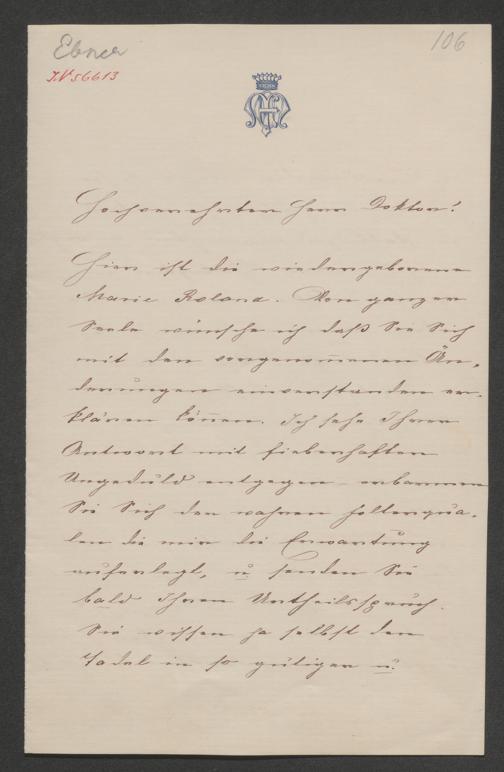 Ebner
106
I.N 56613
Hochverehrter Herr Doktor!
Hier ist die wiedergeborene
Marie Roland. Von ganzer
Seele wünsche ich daß Sie Sich
mit den vorgenom̄enen Än-
derungen einverstanden er-
klären kön̄en. Ich sehe Ihrer
Antwort mit fieberhafter
Ungeduld entgegen erbarmen
Sie Sich der wahren Folterqua-
len die mir die Erwartung
auferlegt, u senden Sie
bald Ihren Urtheilsspruch.
Sie wissen ja selbst den
Tadel in so gütiger u